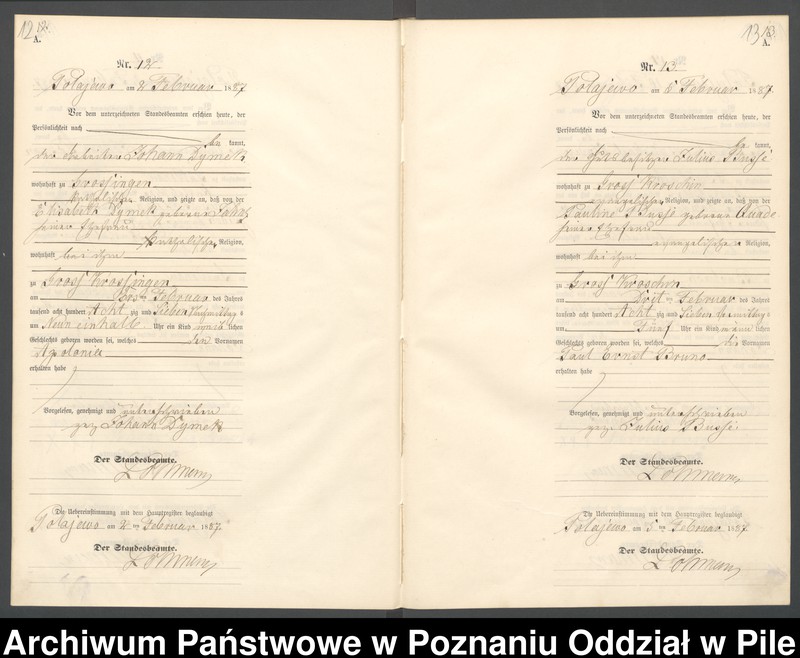 12 12.
A.
Nr. 12
Polajewo am 2 Februar 1887
Vor dem unterzeichneten Standesbeamten erschien heute, der
Persönlichkeit nach
be kannt,
der Arbeiter Johann Dymek
wohnhaft zu Grossingen
katholischer Religion, und zeigte an, daß von der
Elisabeth Dymek geborene
seiner Ehefrau
katholischer Religion,
wohnhaft bei ihm
zu Gross Krossingen
am Februar des Jahres
tausend acht hundert Acht zig und Sieben Nachmittags
um Neun einhalb Uhr ein Kind weib lichen
Geschlechts geboren worden sei, welches den Vornamen
Apolonia
erhalten habe
Vorgelesen, genehmigt und unterschrieben
gez Johann Dymek
Der Standesbeamte.
Die Uebereinstimmung mit dem Hauptregister beglaubigt
Polajewo am 2 ten Februar 1887.
Der Standesbeamte.
13 13.
A.
Nr. 13.
Polajewo am 5 Februar 1887.
Vor dem unterzeichneten Standesbeamten erschien heute, der
Persönlichkeit nach
be kannt,
der Julius Busse
wohnhaft zu Gross Kroschin
evangelischer Religion, und zeigte an, daß von der
Pauline Busse geborene Quade
seiner Ehefrau
evangelischer Religion,
wohnhaft bei ihm
zu Gross Kroschin
am Drit ten Februar des Jahres
tausend acht hundert Acht zig und Sieben Vormittags
um Fünf Uhr ein Kind männ lichen
Geschlechts geboren worden sei, welches die Vornamen
Paul Ernst Bruno
erhalten habe
Vorgelesen, genehmigt und unterschrieben
gez. Julius Busse
Der Standesbeamte.
Die Uebereinstimmung mit dem Hauptregister beglaubigt
Polajewo am 5 ten Februar 1887.
Der Standesbeamte.
Archiwum Państwowe w Poznaniu Oddział w Pile